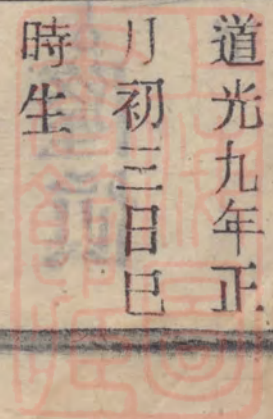 道光九年正
月初三日巳
時生